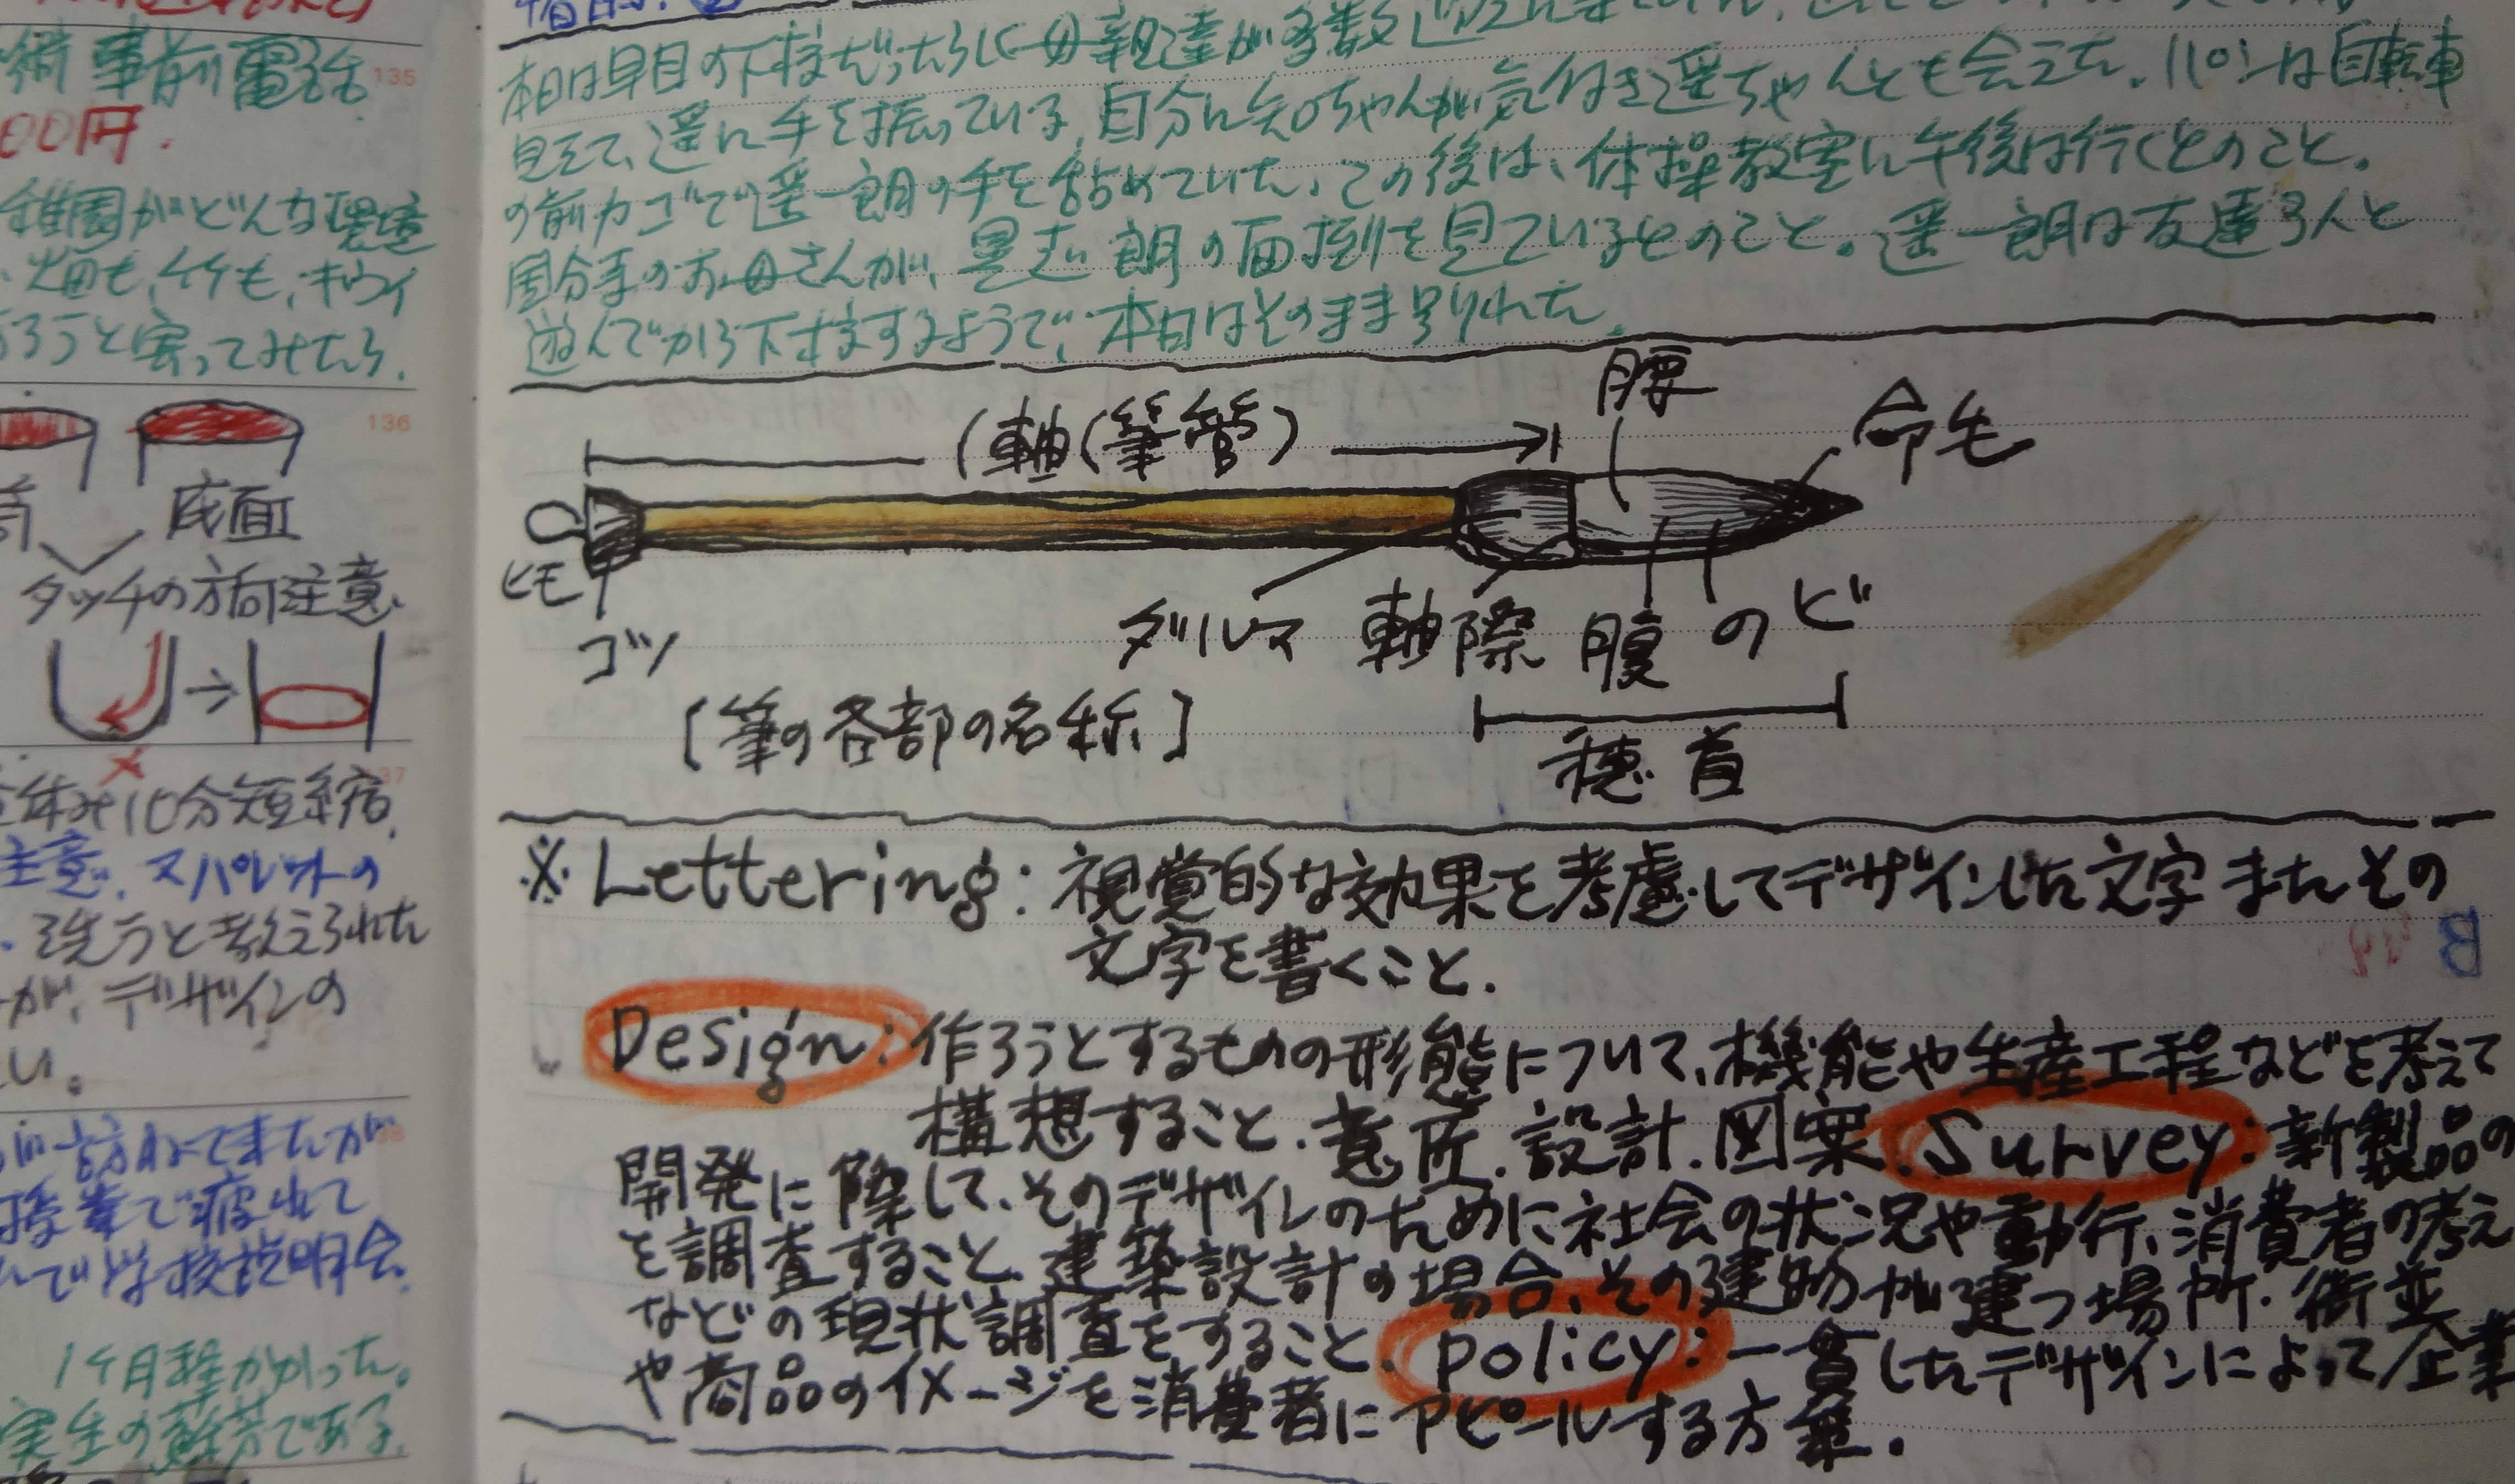 術 事前電話
135
00円.
稚園がどんな環境
畑も、竹も、キウイ
136
底面
タッチの方向注意
137
体み10分短縮.
注意. スパレットの
洗うと考えられた
が、デザインの
い。
訪ねてきたが
授業で疲れて
で学校説明会.
1ヶ月程かかった。
実生の蘇芳である.
本日は早目の下校だったらしく母親達が多数
見えて、遥に手を振っている,自分に知ちゃんが気付き遥ちゃんとも会えた.11011は自転車
の前カゴで遥一朗の手を舐めていた.この後は、体操教室に午後は行くとのこと.
国分寺のお母さんが、志朗の面倒を見ているとのこと。遥一朗は友達3人と
遊んでから下校するようで、本日はそのまま
(軸(筆管)
腰
命毛
ヒモ
ゴツ
ダルマ 軸際 腹 のど
[筆の各部の名称]
穂首
※Lettering: 視覚的な効果を考慮してデザインした文字またその
文字を書くこと.
Design: 作ろうとするものの形態について、機能や生産工程などを考えて
構想すること.意匠.設計.図案.Survey: 新製品の
開発に際して、そのデザインのために社会の状況や動行、消費者の考え
を調査すること.建築設計の場合、その建物が建つ場所.街並
などの現状調査をすること.policy: 一貫したデザインによって企業
や商品のイメージを消費者にアピールする方策.